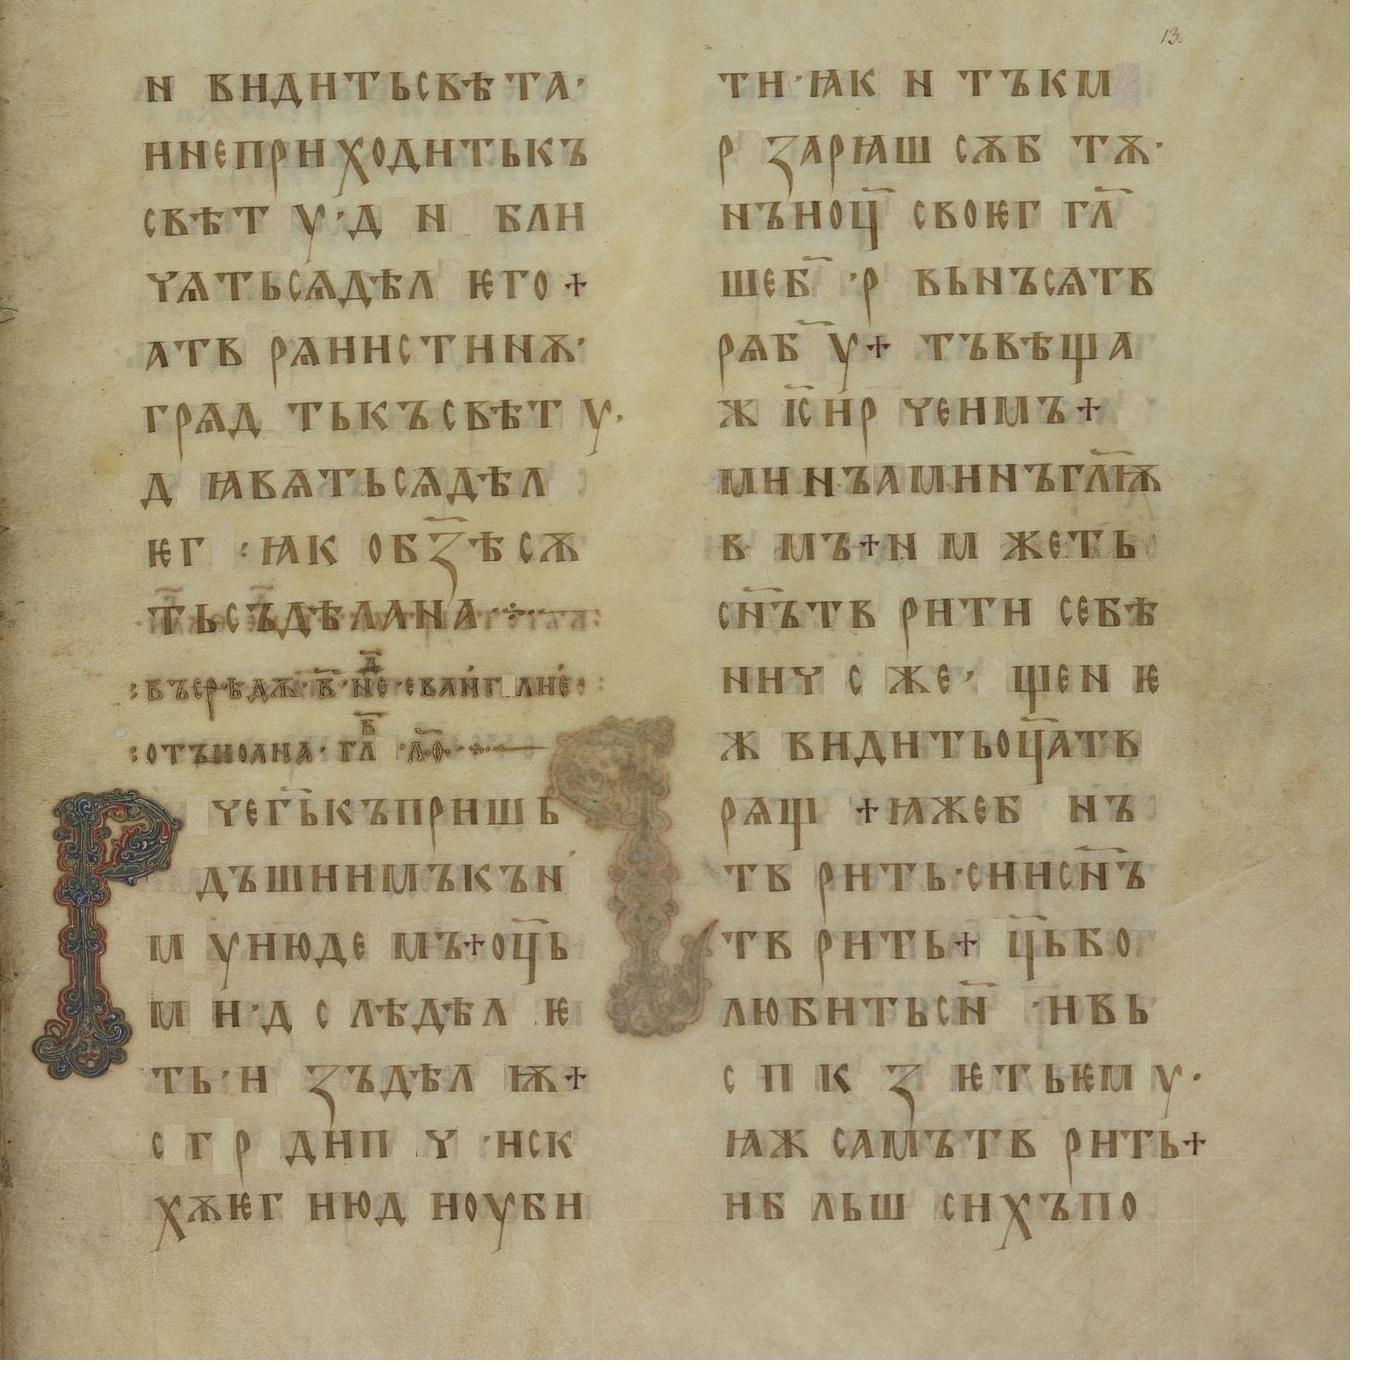 н видитьсвѣ та·
ннеприходитькъ
свѣт у·д н бли
чѧтьсѧдѣл ѥго +
ѧтв рѧиистинѫ·
грѧд тькъсвѣт у·
д ꙗвѧтьсѧдѣл
ѥг ·ꙗк обз҃ѣсѫ
тьсъдѣлана
:въсрѣдѫ·в҃·не·еваиг лие:
:отъиоана· гл ·л҃ѳ·
Р чегькъпришь
дъшиимъкън
м уиюде мъ+оц҃ь
м и·д с лѣдѣл ѥ
ть·и зъдѣл ѭ+
с г р дип ч ·иск
хѫѥг июд иоуби
ти·ꙗк и тъкм
р зарꙗш сѫб тѫ·
нъноц҃ своѥг гл҃
шеб҃ ·р вьнъсѧтв
рѧб҃ у+ тъвѣща
ж іс҃ ир ченмъ+
минъаминъгл҃ѭ
в мъ+н м жеть
сн҃ътв рити себѣ
ннч с же· щен ѥ
ж видитьоц҃атв
рѧщ +ꙗжеб нъ
тв рить·сиисн҃ъ
тв рить+ ц҃ьбо
любитьсн҃ ·ивь
с п к з ѥтьѥм у·
ꙗж самътв рить+
иб льш сихъпо
13.